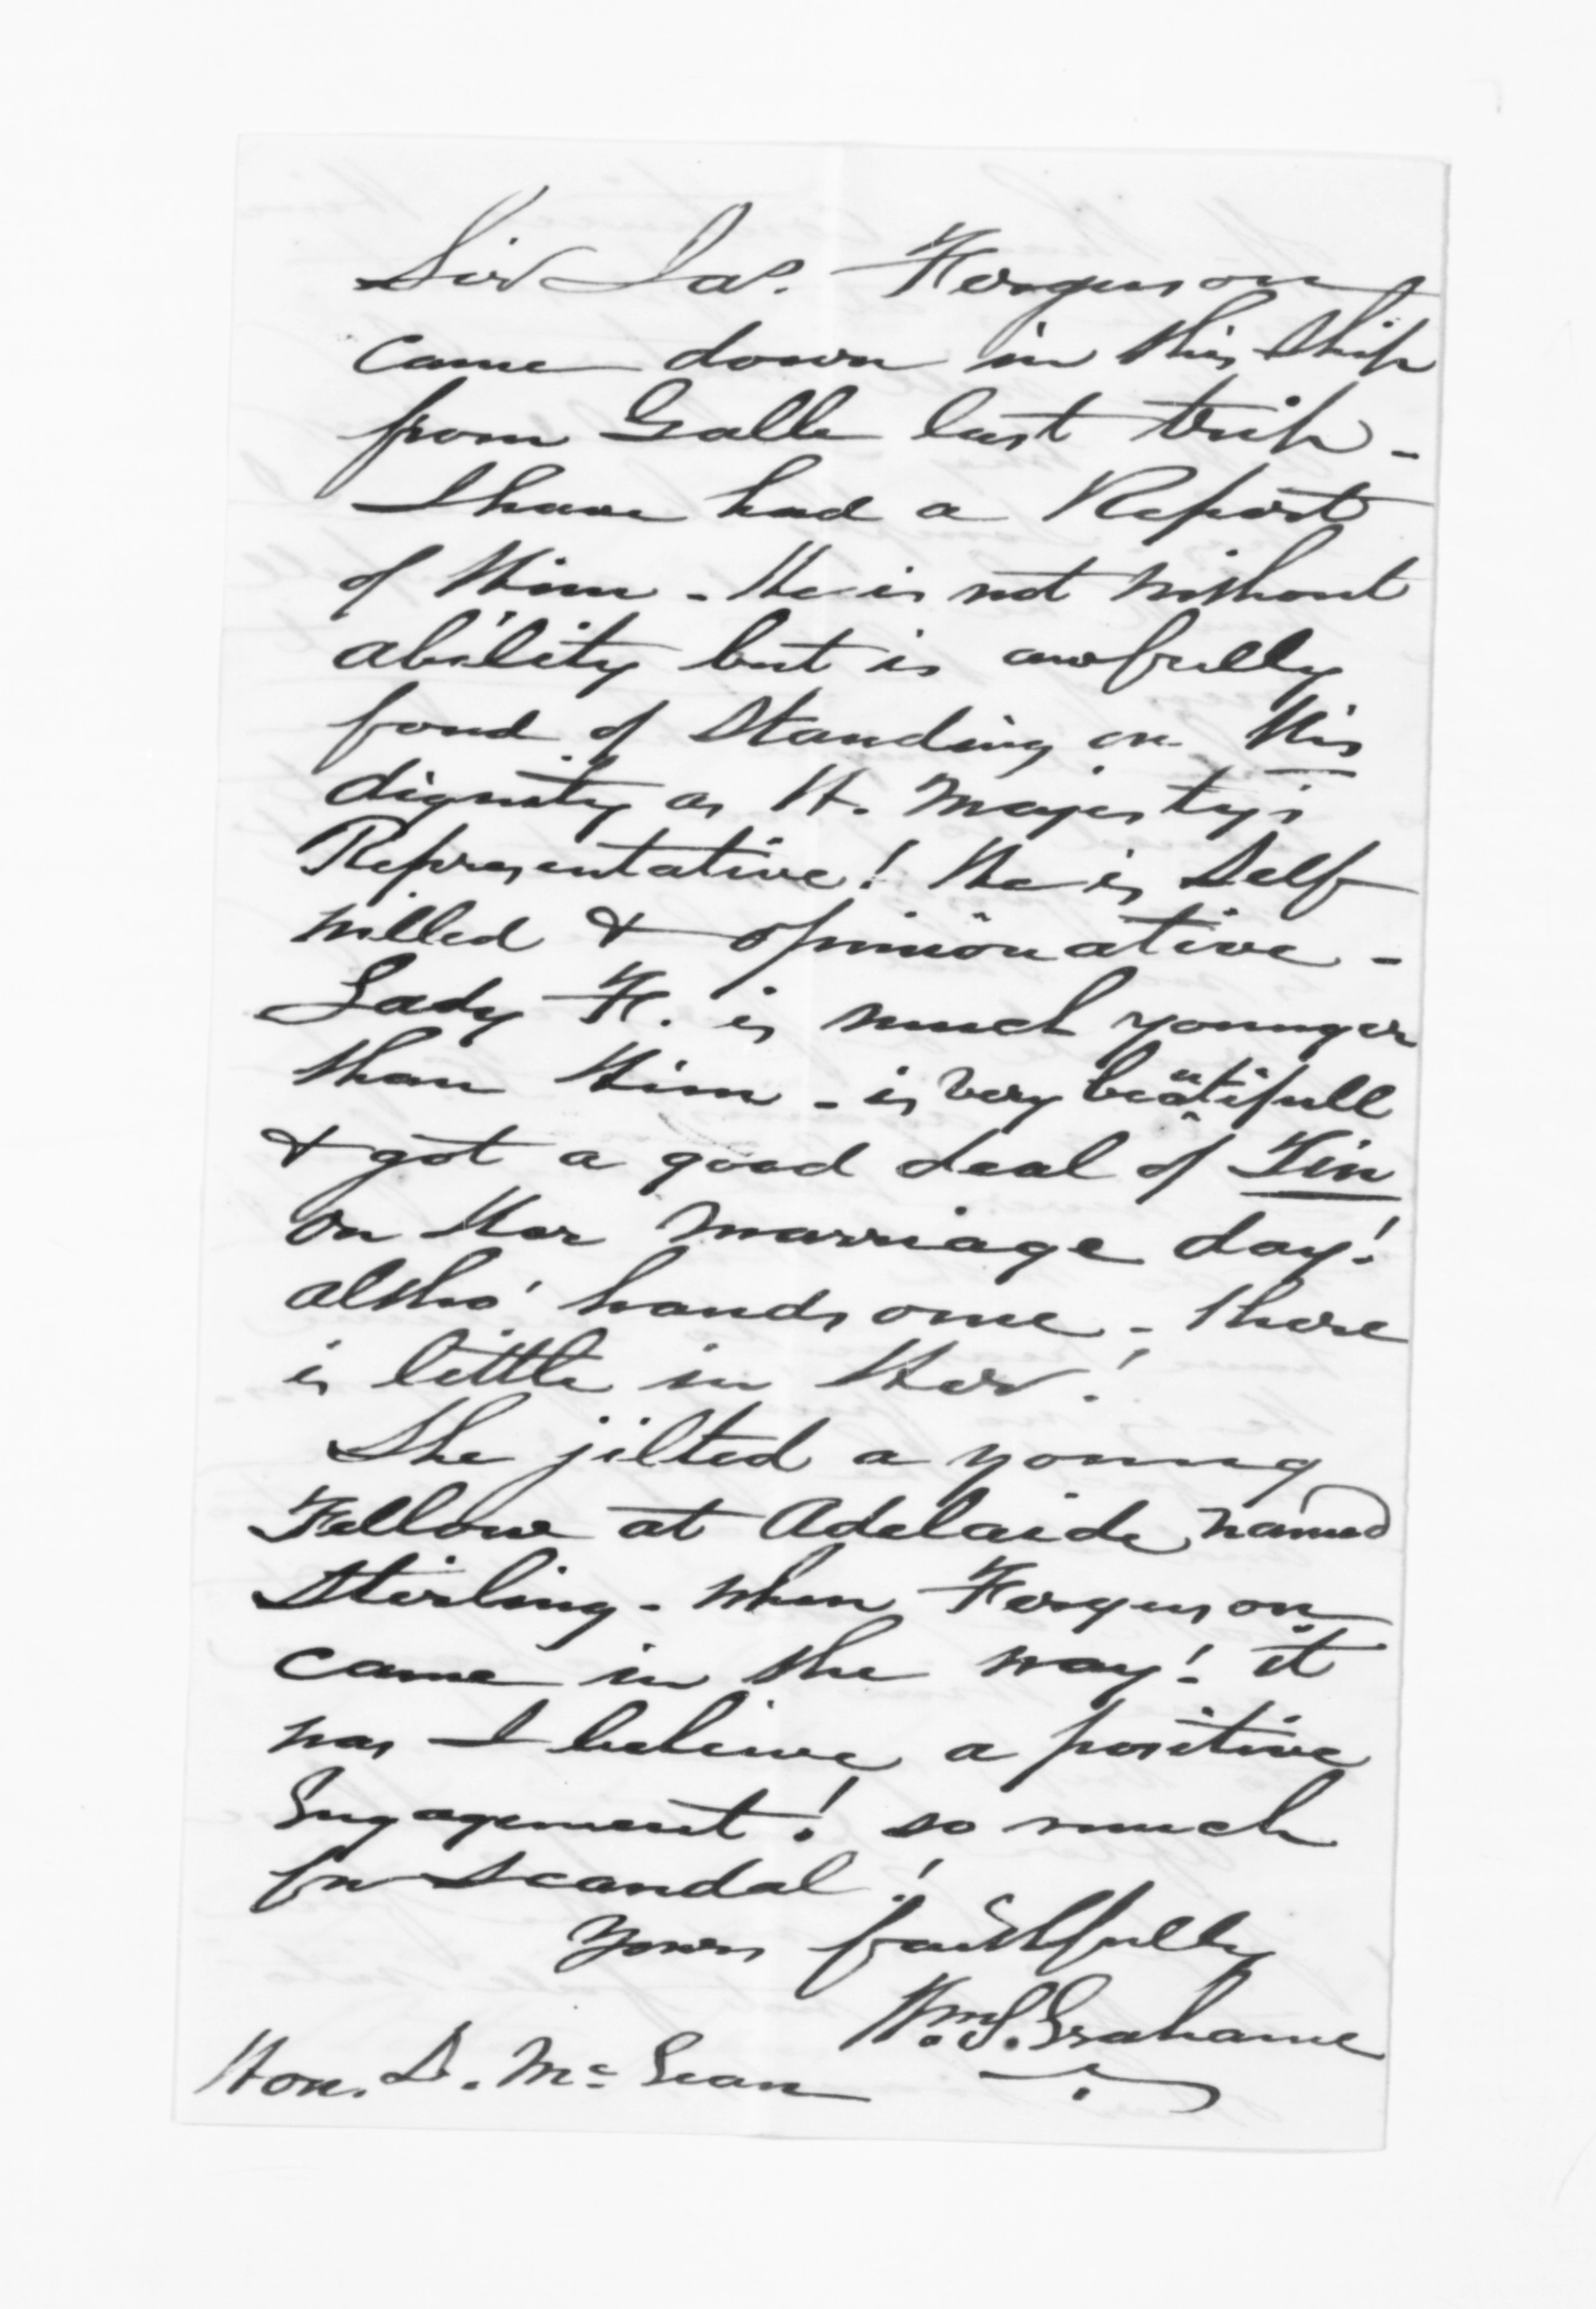 Sir Jas. Ferguson
came down in this Ship
from Galle last trip -
I have had a Report
of Him - He is not without
ability but is awfully
fond of Standing on His
dignity as H. Majesty's
Representative! He is Self
willed & opinionative -
Lady F. is much younger
than Him - is very beautifull
& got a good deal of Tin
on Her marriage day!
altho' handsome - there
is little in Her!
She jilted a young
Fellow at Adelaide named
Sterling - when Ferguson
came in the way! it
was I believe a positive
Engagement! so much
for Scandal!
Yours faithfully
Wm. S. Grahame
Hon. D. McLean